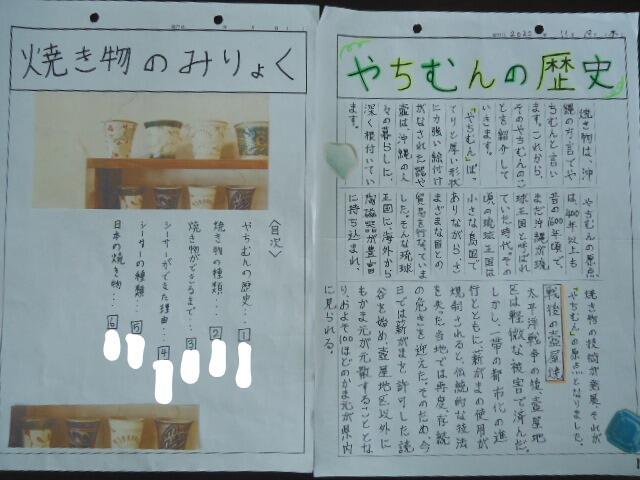 焼き物のみりょく
〈目次〉
やちむんの歴史・・・1
焼き物の種類・・・2
焼き物ができるまで・・・3
シーサーができた理由・・・4
シーサーの種類・・・5
日本の焼き物・・・6
やちむんの歴史
焼き物は、沖
縄の方言でや
ちむんと言い
ます。これから、
そのやちむんのこ
とを紹介して
いきます。
「やちむん」は、ぽ
てりと厚い形状
に力強い絵付け
がなされた器や
壷は、沖縄の人
々の暮らしに、
深く根付いてい
ます。
やちむんの原点
は、400年以上も
昔の1600年頃で、
まだ沖縄が琉
球王国と呼ばれ
ていた時代。その
頃の琉球王国は
小さな島国で
ありながら、さ
まざまな国との
貿易を行なっていま
した。そんな琉球
王国に、海外から
陶磁器が豊富
に持ち込まれ、
焼き物の技術が発展。それが
「やちむん」の原点となりました。
戦後の壺屋焼
太平洋戦争の後、壺屋地
区は軽微な被害で済んだ。
しかし、一帯の都市化の進
行とともに、薪がまの使用が
規制されると、伝統的な技法
を失った当地では再度、存続
の危きを迎えた。そのため、今
日では薪がまを許可した読
谷を始め、壺屋地区以外に
もかま元が元散することとな
り、およそ100ほどのかま元が県内
に見られる。